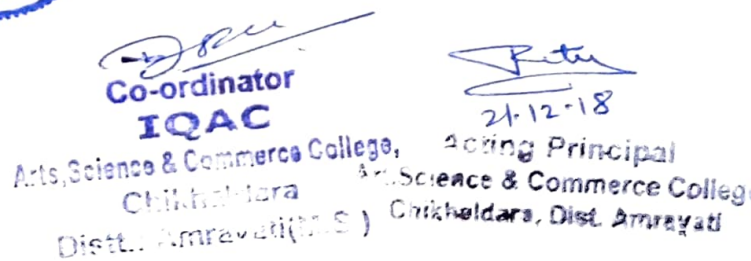 Co-ordinator
IQAC
Arts, Science & Commerce College,
Chikhaldara
Distt.: Amravati (M.S.)
21-12-18
Acting Principal
Science & Commerce Colleg
Chikhaldara, Dist. Amravati